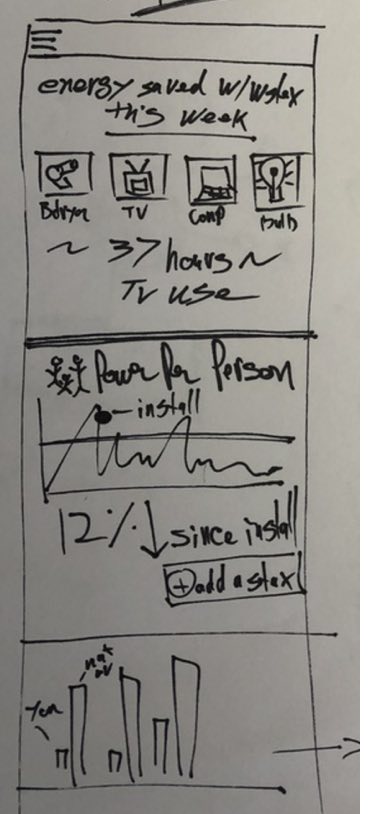 energy saved w/wstax
this week
Bdryer TV Comp Bulb
~ 37 hours ~
TV use
Power Per Person
install
12%↓ since install
⊕ add a stax
nat av
You